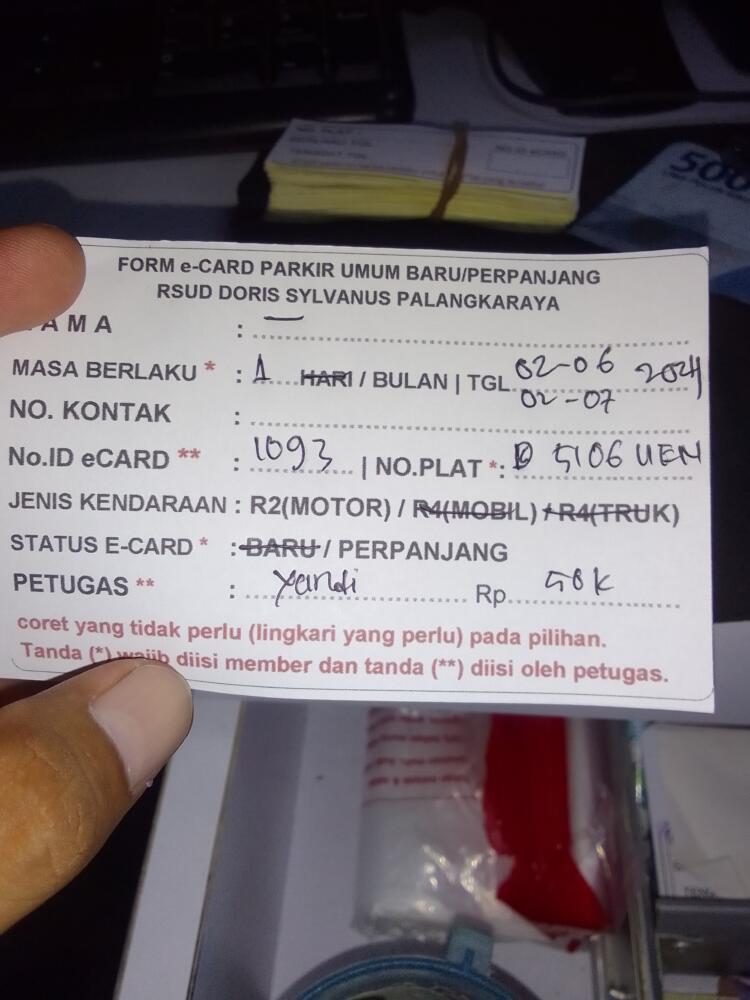 NO. PLAT :
500
FORM e-CARD PARKIR UMUM BARU/PERPANJANG
RSUD DORIS SYLVANUS PALANGKARAYA
AMA : —
MASA BERLAKU * : 1 HARI / BULAN | TGL 02-06 2024
02-07
NO. KONTAK :
No.ID eCARD ** : 1093 | NO.PLAT *: 5106 UEN
JENIS KENDARAAN : R2(MOTOR) / R4(MOBIL) / R4(TRUK)
STATUS E-CARD * : BARU / PERPANJANG
PETUGAS ** : Yandi Rp. 50K
coret yang tidak perlu (lingkari yang perlu) pada pilihan.
Tanda (*) wajib diisi member dan tanda (**) diisi oleh petugas.